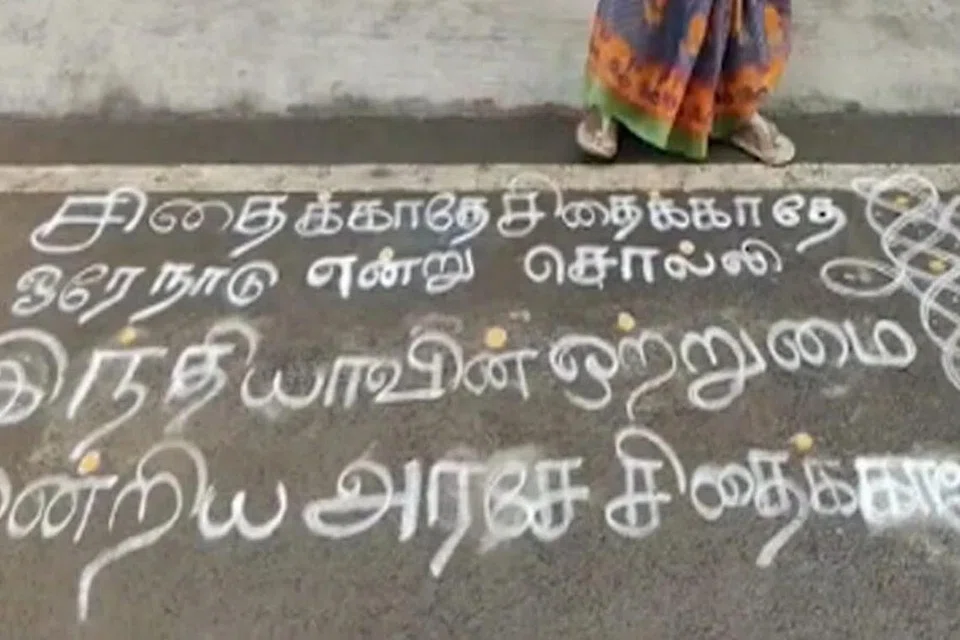 சிதைக்காதே சிதைக்காதே
ஒரே நாடு என்று சொல்லி
இந்தியாவின் ஒற்றுமை
ஒன்றிய அரசே சிதைக்காதே